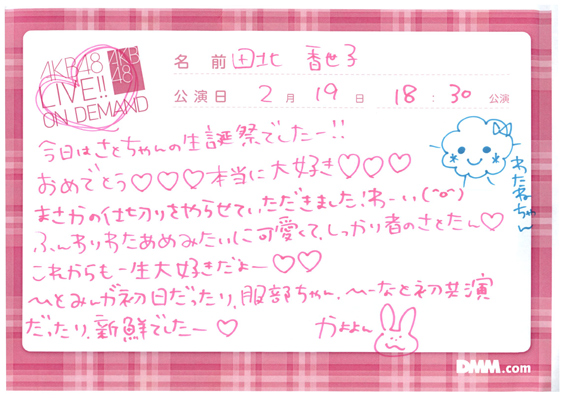 AKB48
LIVE!!
ON DEMAND
AKB
48
名 前 田北 香世子
公演日 2月 19日 18:30 公演
今日はさとちゃんの生誕祭でしたー!!
おめでとう♡♡♡本当に大好き♡♡♡
まさかの仕切りをやらせていただきました!わーい(^o^)
ふんわりわたあめみたいに可愛くて、しっかり者のさとたん♡
これからも一生大好きだよー♡♡
みーが初日だったり、服部ちゃん、なと初共演
だったり、新鮮でしたー♡
かよよん
わたあめちゃん
DMM.com